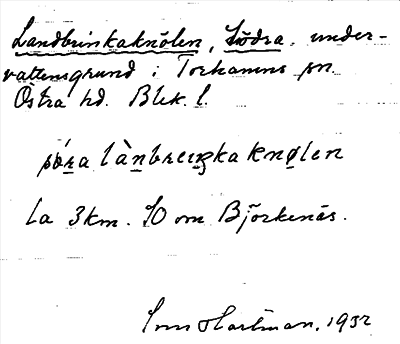 Landbrinkaknölen, Södra. under-
vattensgrund i Torhamns sn.
Östra hd. Blek. l.
sǿra lànbreŋkaknølen
ca 3 km. SO om Björkenäs.
Hartman, 1932